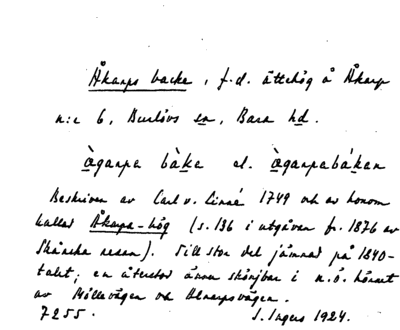 Åkarps backe, f.d. ättehög å Åkarp
n:r 6, Burlövs sn, Bara hd.
àganpa bàka el. àganpabákan
Beskriven av Carl v. Linné 1749 och av honom
kallad Åkarpa-hög (s. 136 i utgåvan fr. 1876 av
Skånska resan). Till stor del jämnad på 1840-
talet; en återstod ännu skönjbar i n.ö. hörnet
av Möllevägen och Alnarpsvägen.
7255. S. Ingers 1924.